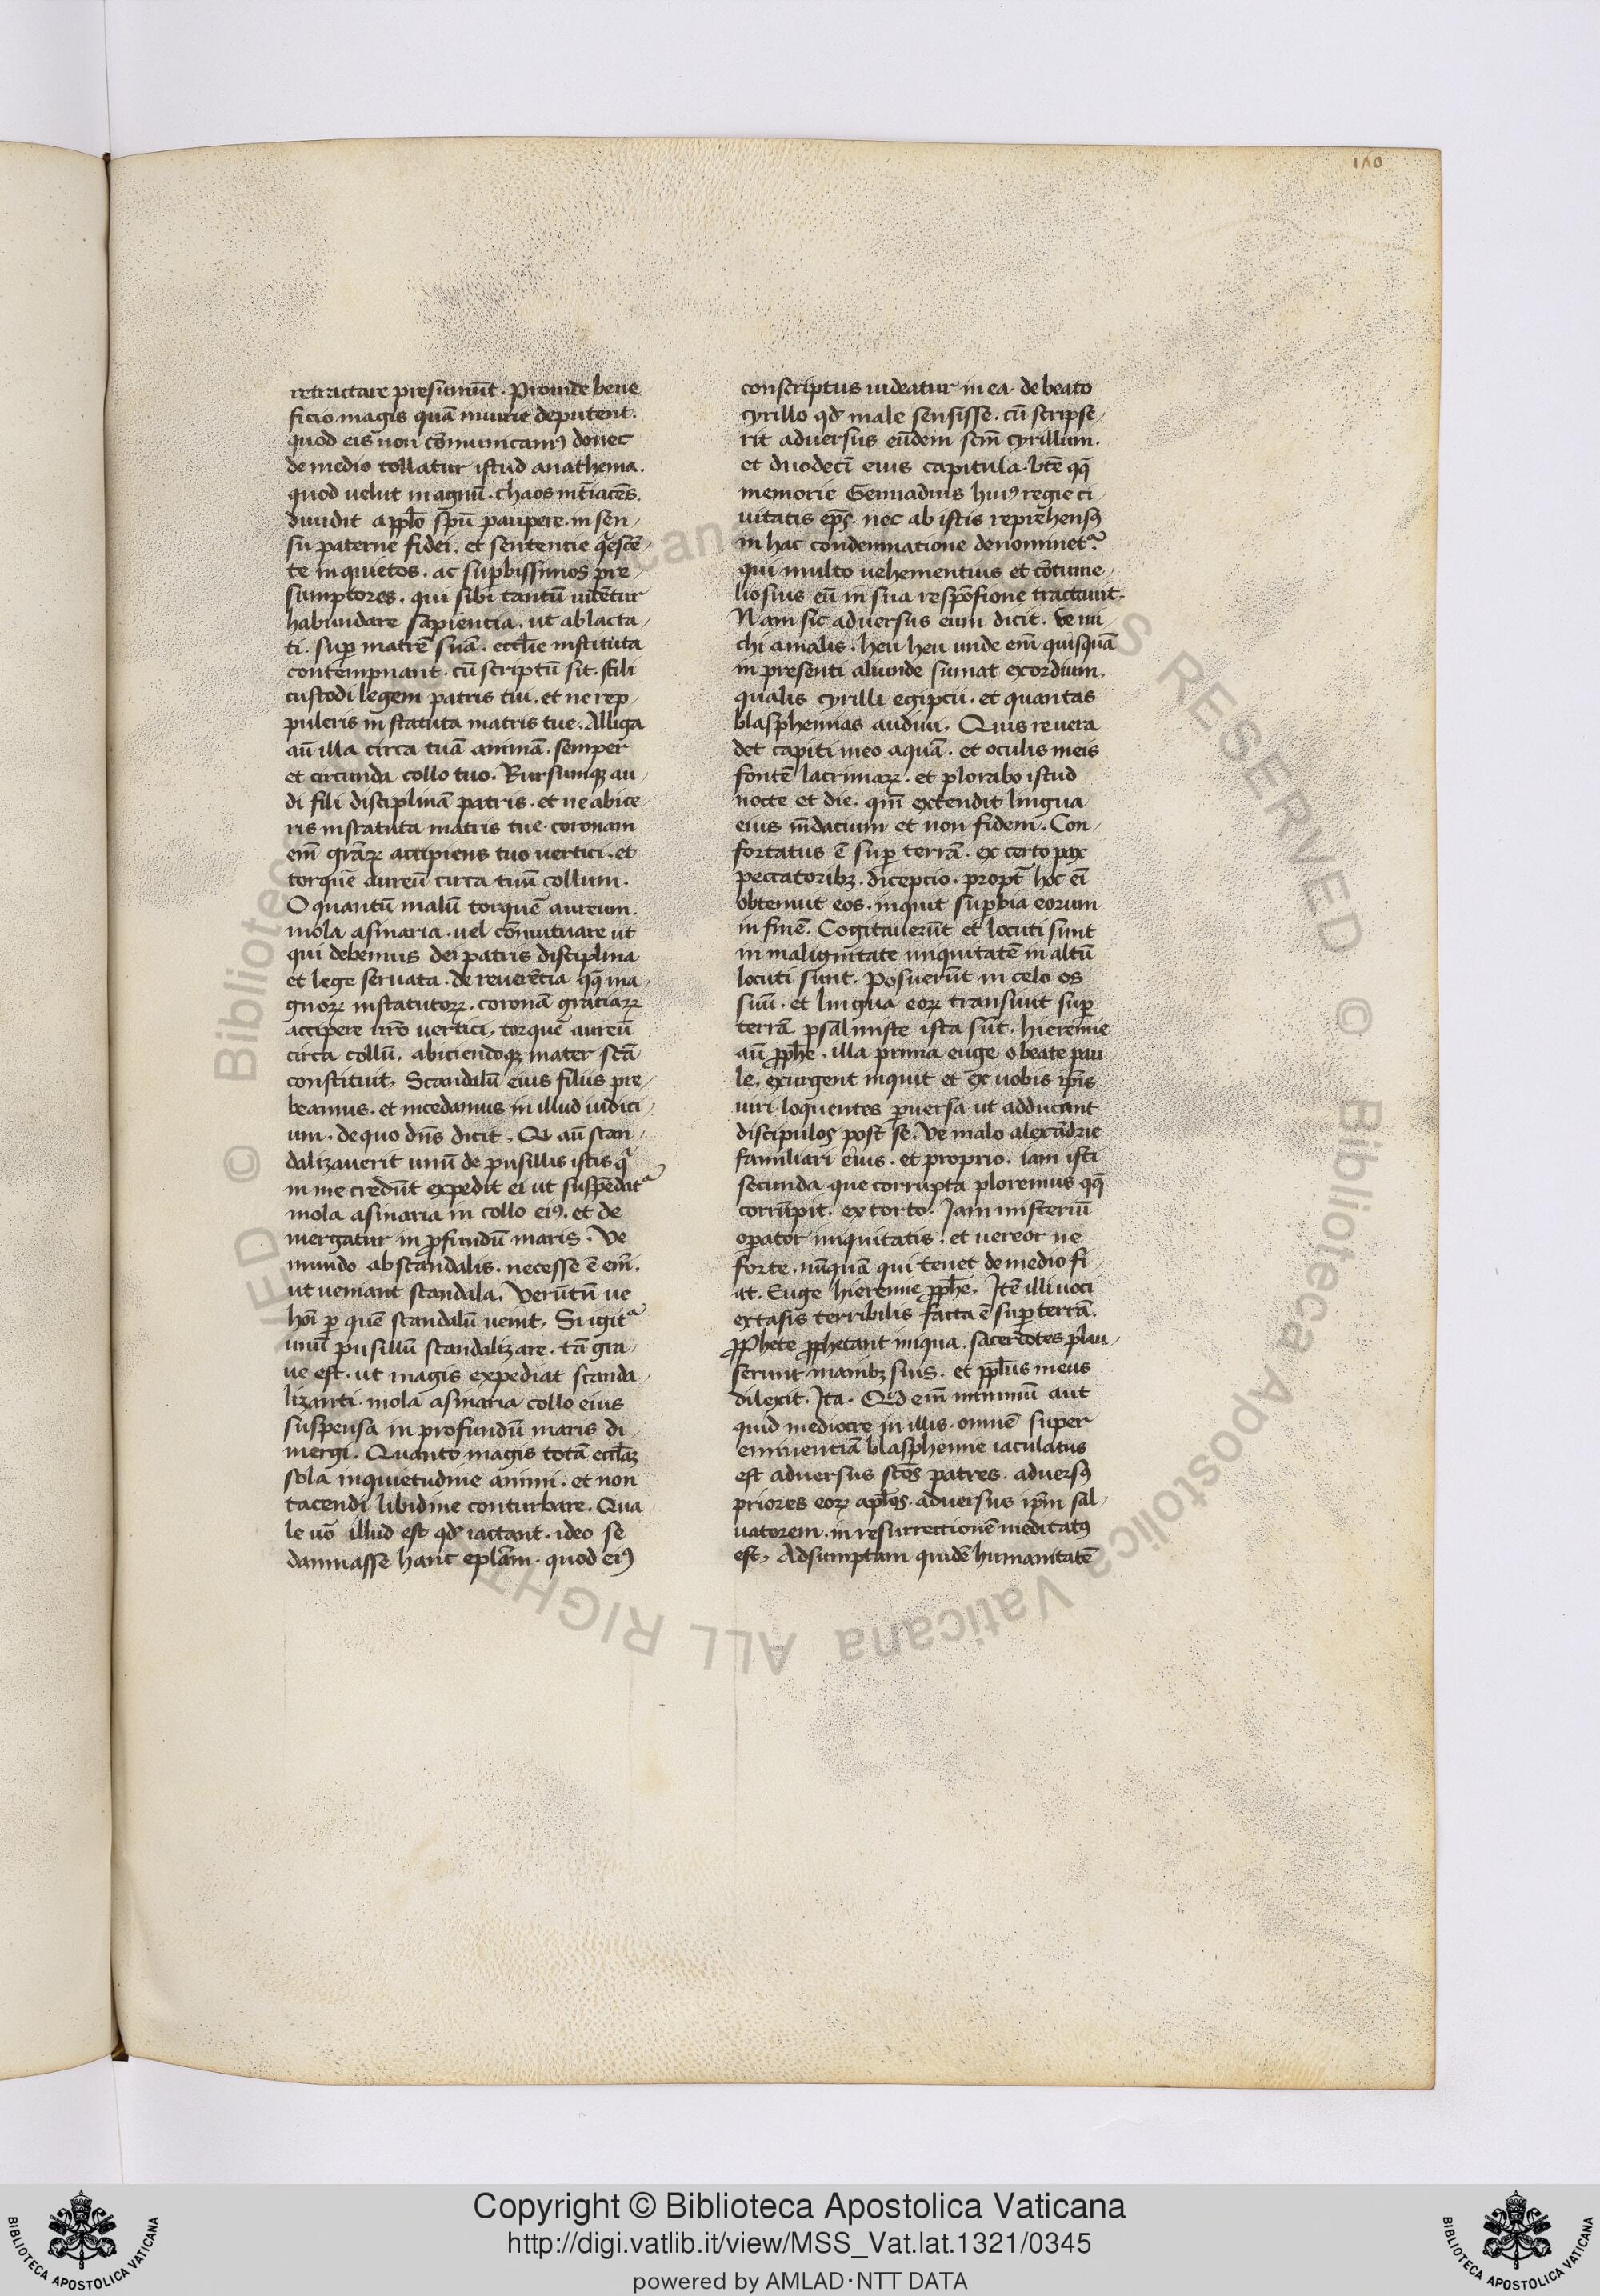 180
retractare presumūt. Proinde bene
ficio magis quā iniurie deputent.
quod eis non cōmunicamꝰ donec
de medio tollatur istud anathema.
quod uelut magnū. chaos int̄iacēs.
diuidit appl̄o sp̄u paupere. in sen-
su paterne fidei. et sententie q̄escē-
te inquietos. ac suꝑbissimos pre-
sumptores. qui sibi tantū uidētur
habundare sapientia. ut ablacta-
ti. suꝑ matrē suā. eccl̄ie instituta
contempnant. cū scriptū sit. fili
custodi legem patris tui. et ne rep-
puleris instatuta matris tue. Alliga
aū illa circa tuā animā. semper
et circunda collo tuo. Rursumqꝫ au-
di fili disciplinā patris. et ne abice-
ris instatuta matris tue. coronam
em̄ gr̄aꝝ accipiens tuo uertici. et
torquē aureū circa tuū collum.
O quantū malū torquē aureum.
mola asinaria. uel cōmutuare ut
qui debemus dei patris disciplina
et lege seruata. de reuerētia qꝙ ma-
gnoꝝ instatutoꝝ. coronā gratiaꝝ
accipere nr̄o uertici. torquē aureū
circa collū. abiciendoqꝫ mater scā
constituit. Scandalū eius filiis pre-
beamus. et incedamus in illud iudici-
um. de quo dn̄s dicit. Q aū scan-
dalizauerit unū de pusillis istis q̄
in me credūt expedit ei ut suspēdatᵃ
mola asinaria in collo eiꝰ. et de
mergatur in ꝓfundū maris. Ve
mundo ab scandalis. necesse ē em̄.
ut ueniant scandala. Verūtn̄ ue
hoī ꝑ quē scandalū uenit. Si igitᵃ
unū pusillū scandalizare. tā gra-
ue est. ut magis expediat scanda-
lizanti. mola asinaria collo eius
suspensa in profundū maris di-
mergi. Quanto magis totā eccl̄iaꝫ
sola inquietudine animi. et non
tacendi libidine conturbare. Qua
le uō illud est qd̄ iactant. ideo se
damnasse hanc epl̄am. quod eiꝰ
conscriptus uideatur in ea. de beato
cyrillo qd̄ male sensisse. cū scripse-
rit aduersus eūdem scm̄ cyrillum.
et duodecī eius capitula. btē qꝙ
memorie Gennadius huiꝰ regie ci-
uitatis ep̄s. nec ab istis reprehensꝰ
in hac condemnatione denominetᵃ.
qui multo uehementius et cōtume-
liosius eū in sua respōsione tractauit.
Nam sic aduersus eum dicit. Ve mi-
chi amalis. heu heu unde em̄ quisquā
in presenti aliunde sumat exordium.
qualis cyrilli egipcii. et quantas
blasphemias audiui. Quis reuera
det capiti meo aquā. et oculis meis
fontē lacrimaꝝ. et plorabo istud
nocte et die. qm̄ extendit lingua
eius m̄dacium et non fidem. Con-
fortatus ē suꝑ terrā. ex certo pax
peccatoribꝫ. dicepcio. propt̄ hoc eī
obtenuit eos. inquit suꝑbia eorum
in finē. Cogitauerūt et locuti sunt
in malignitate iniquitatē in altū
locuti sunt. Posuerūt in celo os
suū. et lingua eoꝝ transiuit suꝑ
terrā. psalmiste ista sūt. hieremie
aū ꝓph̄e. illa prima euge o beate pau
le. exurgent inquit et ex uobis ip̄is
uiri loquentes ꝑuersa ut adducant
discipulos post se. Ve malo alexādrie
familiari eius. et proprio. iam isti
secunda que corrupta ploremus qꝙ
corrūpit. ex torto. Iam misteriū
oꝑator iniquitatis. et uereor ne
forte. nūquā qui tenet de medio fi-
at. Euge hieremie ꝓph̄e. Itē illi uoci
extasis terribilis facta ē suꝑ terrā.
ꝓPhete ꝓphetant iniqua. sacerdotes plau-
serunt manibꝫ suis. et ppl̄us meus
dilexit. Ita. Qid em̄ minimū aut
quid mediocre in illis. omnē super
eminentiā blasphemie iaculatus
est aduersus scōs patres. aduersꝰ
priores eoꝝ apl̄os. aduersus ip̄m sal-
uatorem. in resurrectionē meditatꝰ
est. Adsumptam quidē humanitatē
Copyright © Biblioteca Apostolica Vaticana
http://digi.vatlib.it/view/MSS_Vat.lat.1321/0345
powered by AMLAD·NTT DATA